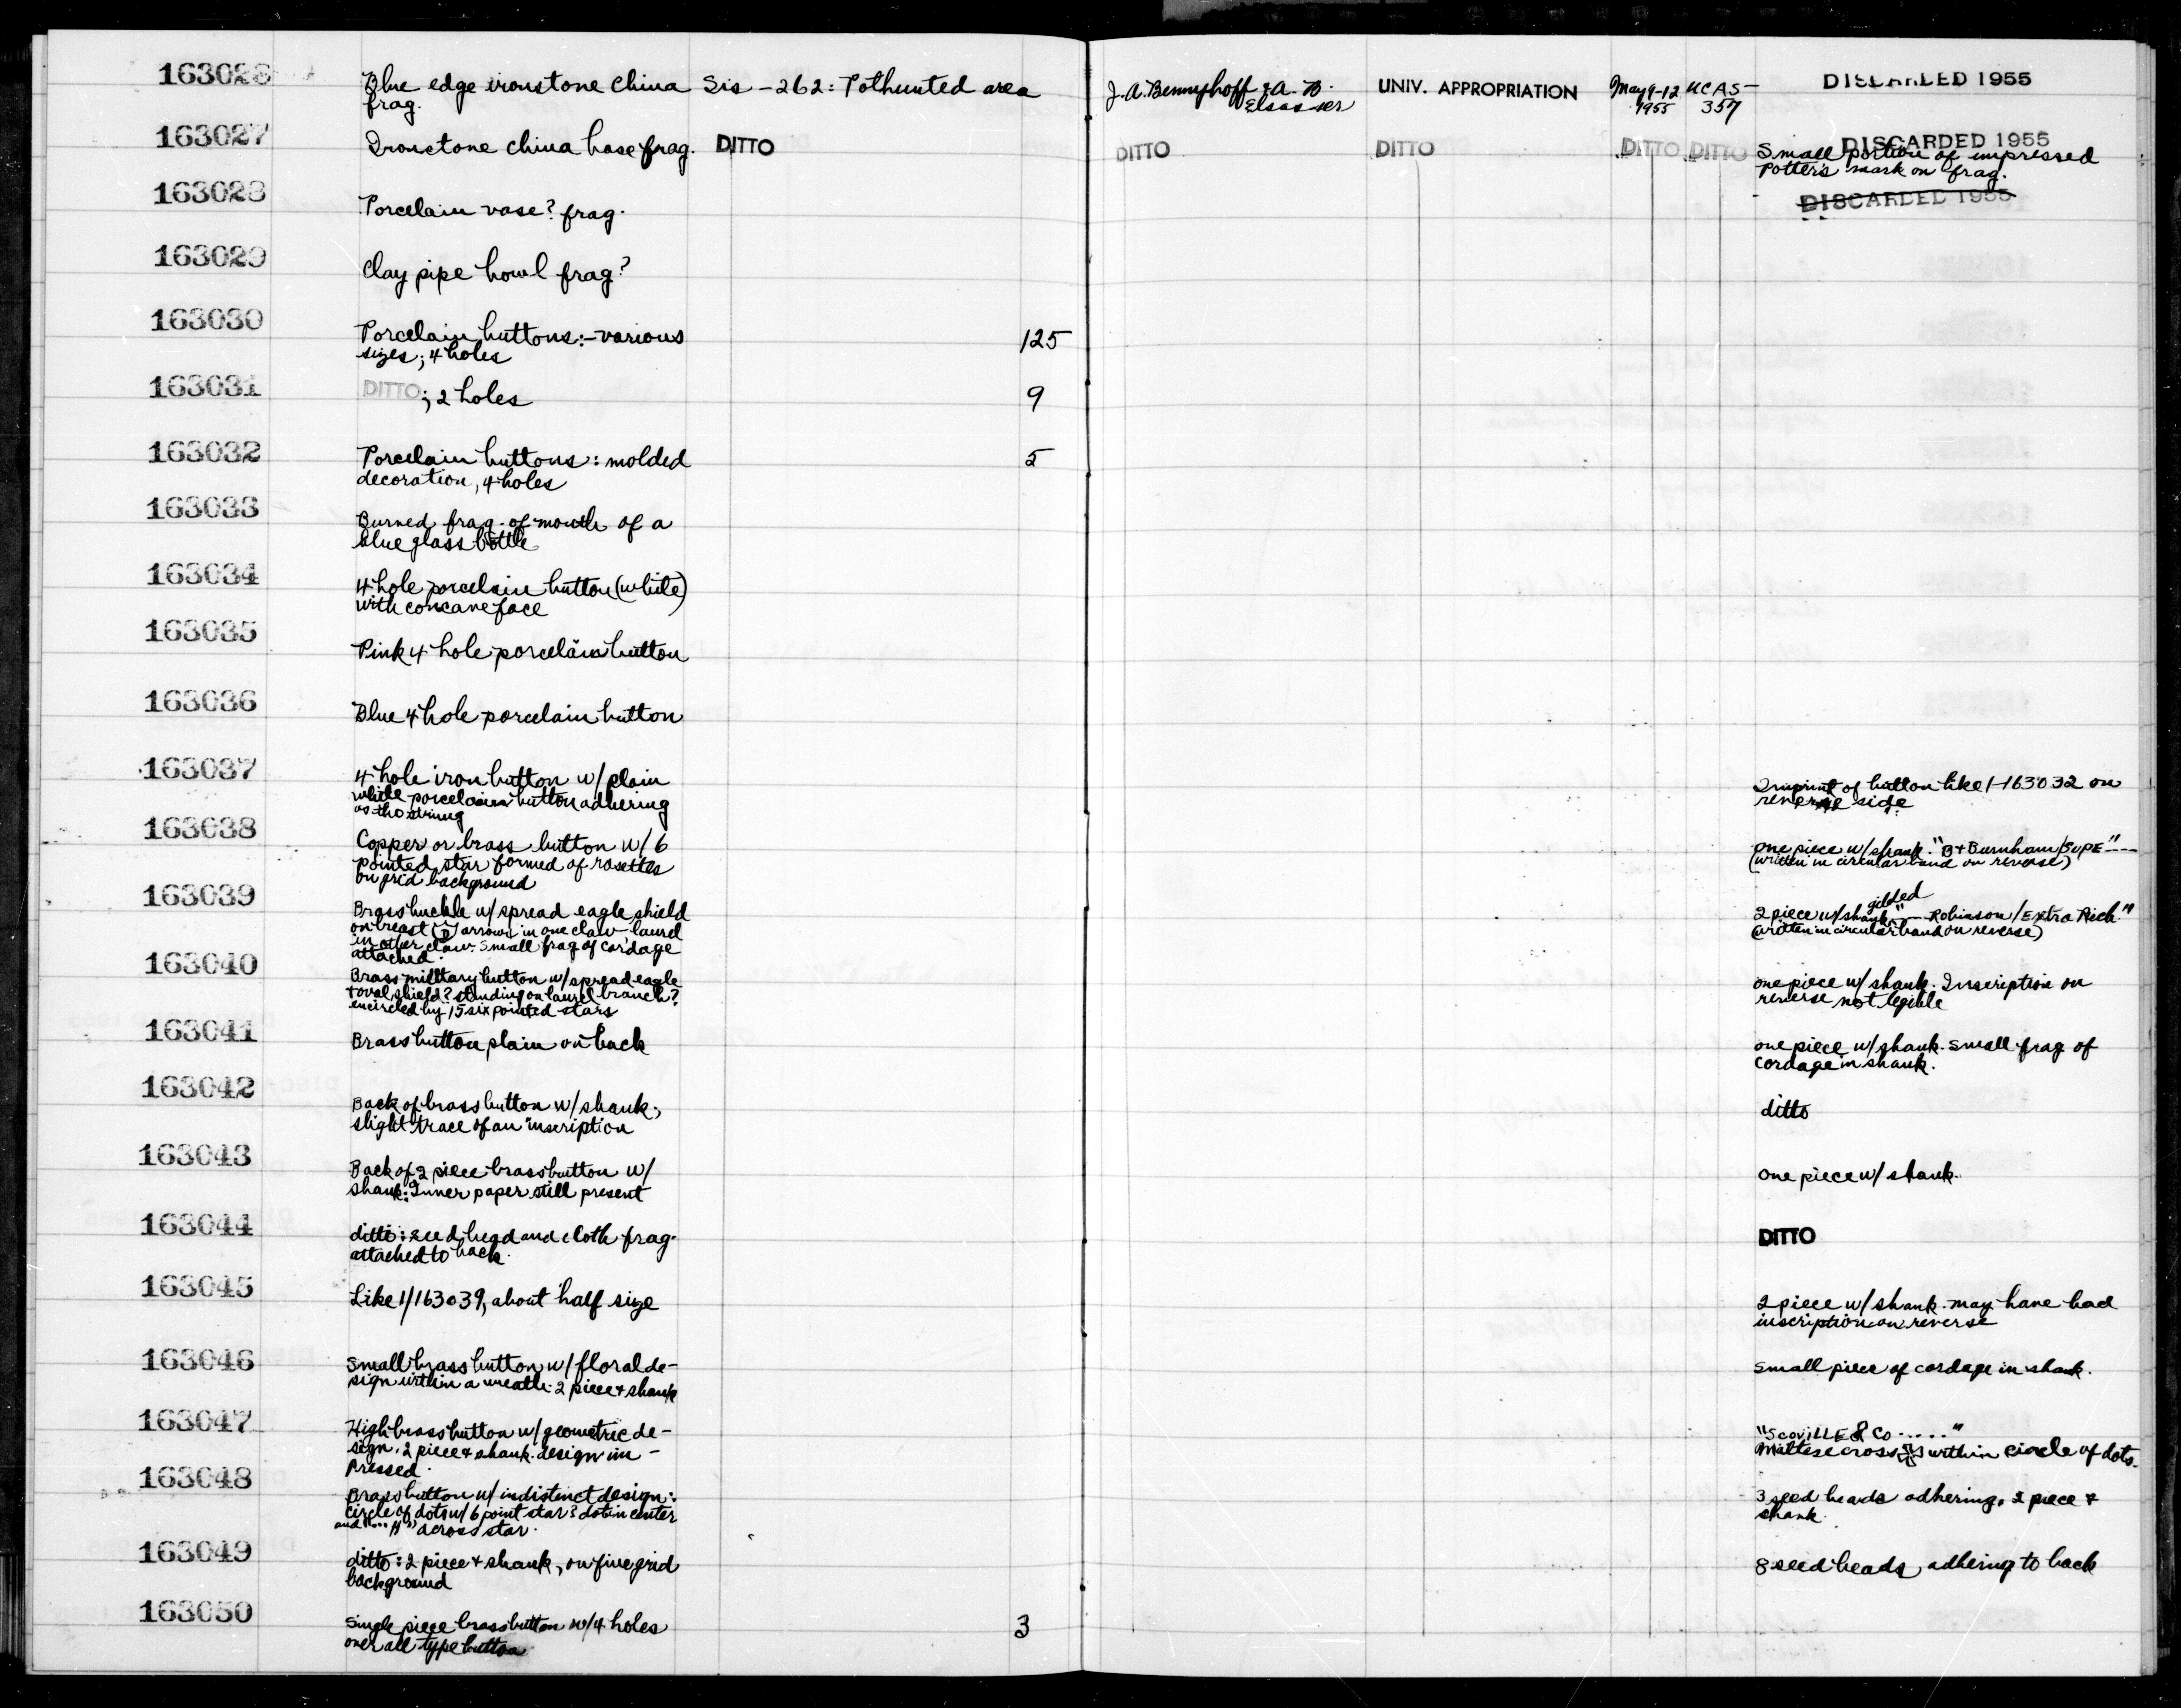 163026 Blue edge ironstone china Sis-262: Pothunted area J.A. Bennyhoff & A.B. UNIV. APPROPRIATION May 9-12 UCAS- DISCARDED 1955
frag. Elsasser 1955 357
163027 Ironstone china base frag. DITTO DITTO DITTO DITTO DITTO DISCARDED 1955
Small portion of impressed
Potter's mark on frag.
163028 Porcelain vase? frag. DISCARDED 1955
163029 Clay pipe bowl frag?
163030 Porcelain buttons:-various 125
sizes; 4 holes
163031 DITTO; 2 holes 9
163032 Porcelain buttons: molded 5
decoration, 4 holes
163033 Burned frag. of mouth of a
blue glass bottle
163034 4 hole porcelain button (white)
with concave face
163035 Pink 4 hole porcelain button
163036 Blue 4 hole porcelain button
163037 4 hole iron button w/ plain Imprint of button like 1-163032 on
white porcelain button adhering reverse side
as tho strung
163038 Copper or brass button w/ 6 one piece w/ shank. "B+Burnham/SUPE"---
pointed star formed of rosettes (written in circular band on reverse)
on grid background
163039 Brass buckle w/ spread eagle shield 2 piece w/ shank gilded "--- Robinson/Extra Rich"
on breast D arrows in one claw laurel (written in circular band on reverse)
in other claw. Small frag of cordage
attached.
163040 Brass military button w/ spread eagle one piece w/ shank. Inscription on
+ oval shield? standing on laurel branch? reverse not legible
encircled by 15 six pointed stars
163041 Brass button plain on back one piece w/ shank. small frag of
cordage in shank.
163042 Back of brass button w/ shank; ditto
slight trace of an inscription
163043 Back of 2 piece brass button w/ one piece w/ shank.
shank: Inner paper still present
163044 ditto: seed bead and cloth frag. DITTO
attached to back.
163045 Like 1/163039, about half size 2 piece w/ shank. may have had
inscription on reverse
163046 Small brass button w/ floral de- small piece of cordage in shank.
sign within a wreath. 2 piece + shank
163047 High brass button w/ geometric de- "Scoville & Co ....."
sign. 2 piece + shank. design im- Maltese cross within circle of dots.
pressed.
163048 Brass button w/ indistinct design: 3 seed beads adhering. 2 piece +
circle of dots w/ 6 point star? dot in center shank.
and "... H" across star.
163049 ditto: 2 piece + shank, on fine grid 8 seed beads adhering to back
background
163050 Single piece brass button w/ 4 holes 3
over all type button